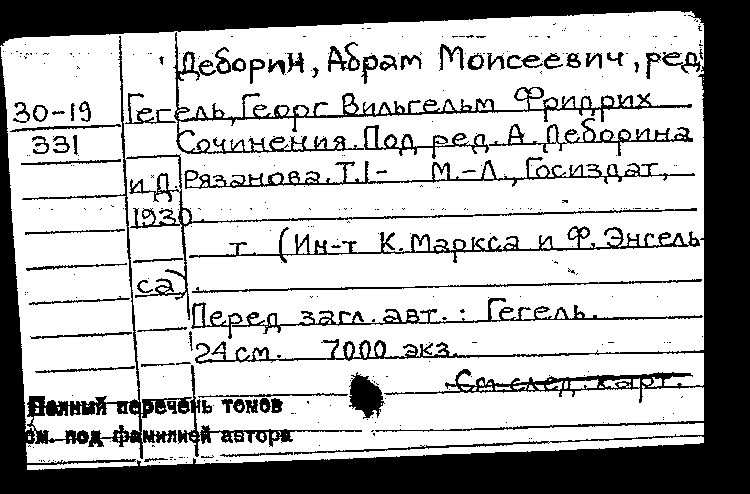 Деборин, Абрам Моисеевич, ред.
30-19 Гегель, Георг Вильгельм Фридрих
331 Сочинения. Под ред. А. Деборина
и Д. Рязанова. Т.1- М.-Л., Госиздат,
1930.
т. (Ин-т К. Маркса и Ф. Энгель-
са).
Перед загл. авт.: Гегель.
24 см. 7000 экз.
См. след. карт.
Полный перечень томов
см. под фамилией автора